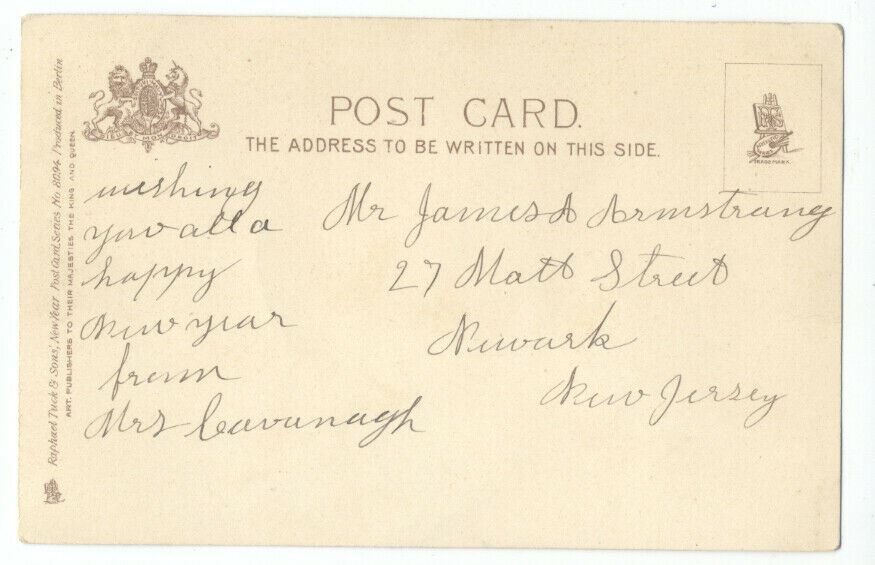 POST CARD.
THE ADDRESS TO BE WRITTEN ON THIS SIDE.
TRADE MARK.
Raphael Tuck & Sons' New Year Post Card Series No. 8094 Produced in Berlin
ART PUBLISHERS TO THEIR MAJESTIES THE KING AND QUEEN.
wishing
you all a
happy
New year
from
Mrs Cavanagh
Mr James A Armstrong
27 Matt Street
Newark
New Jersey